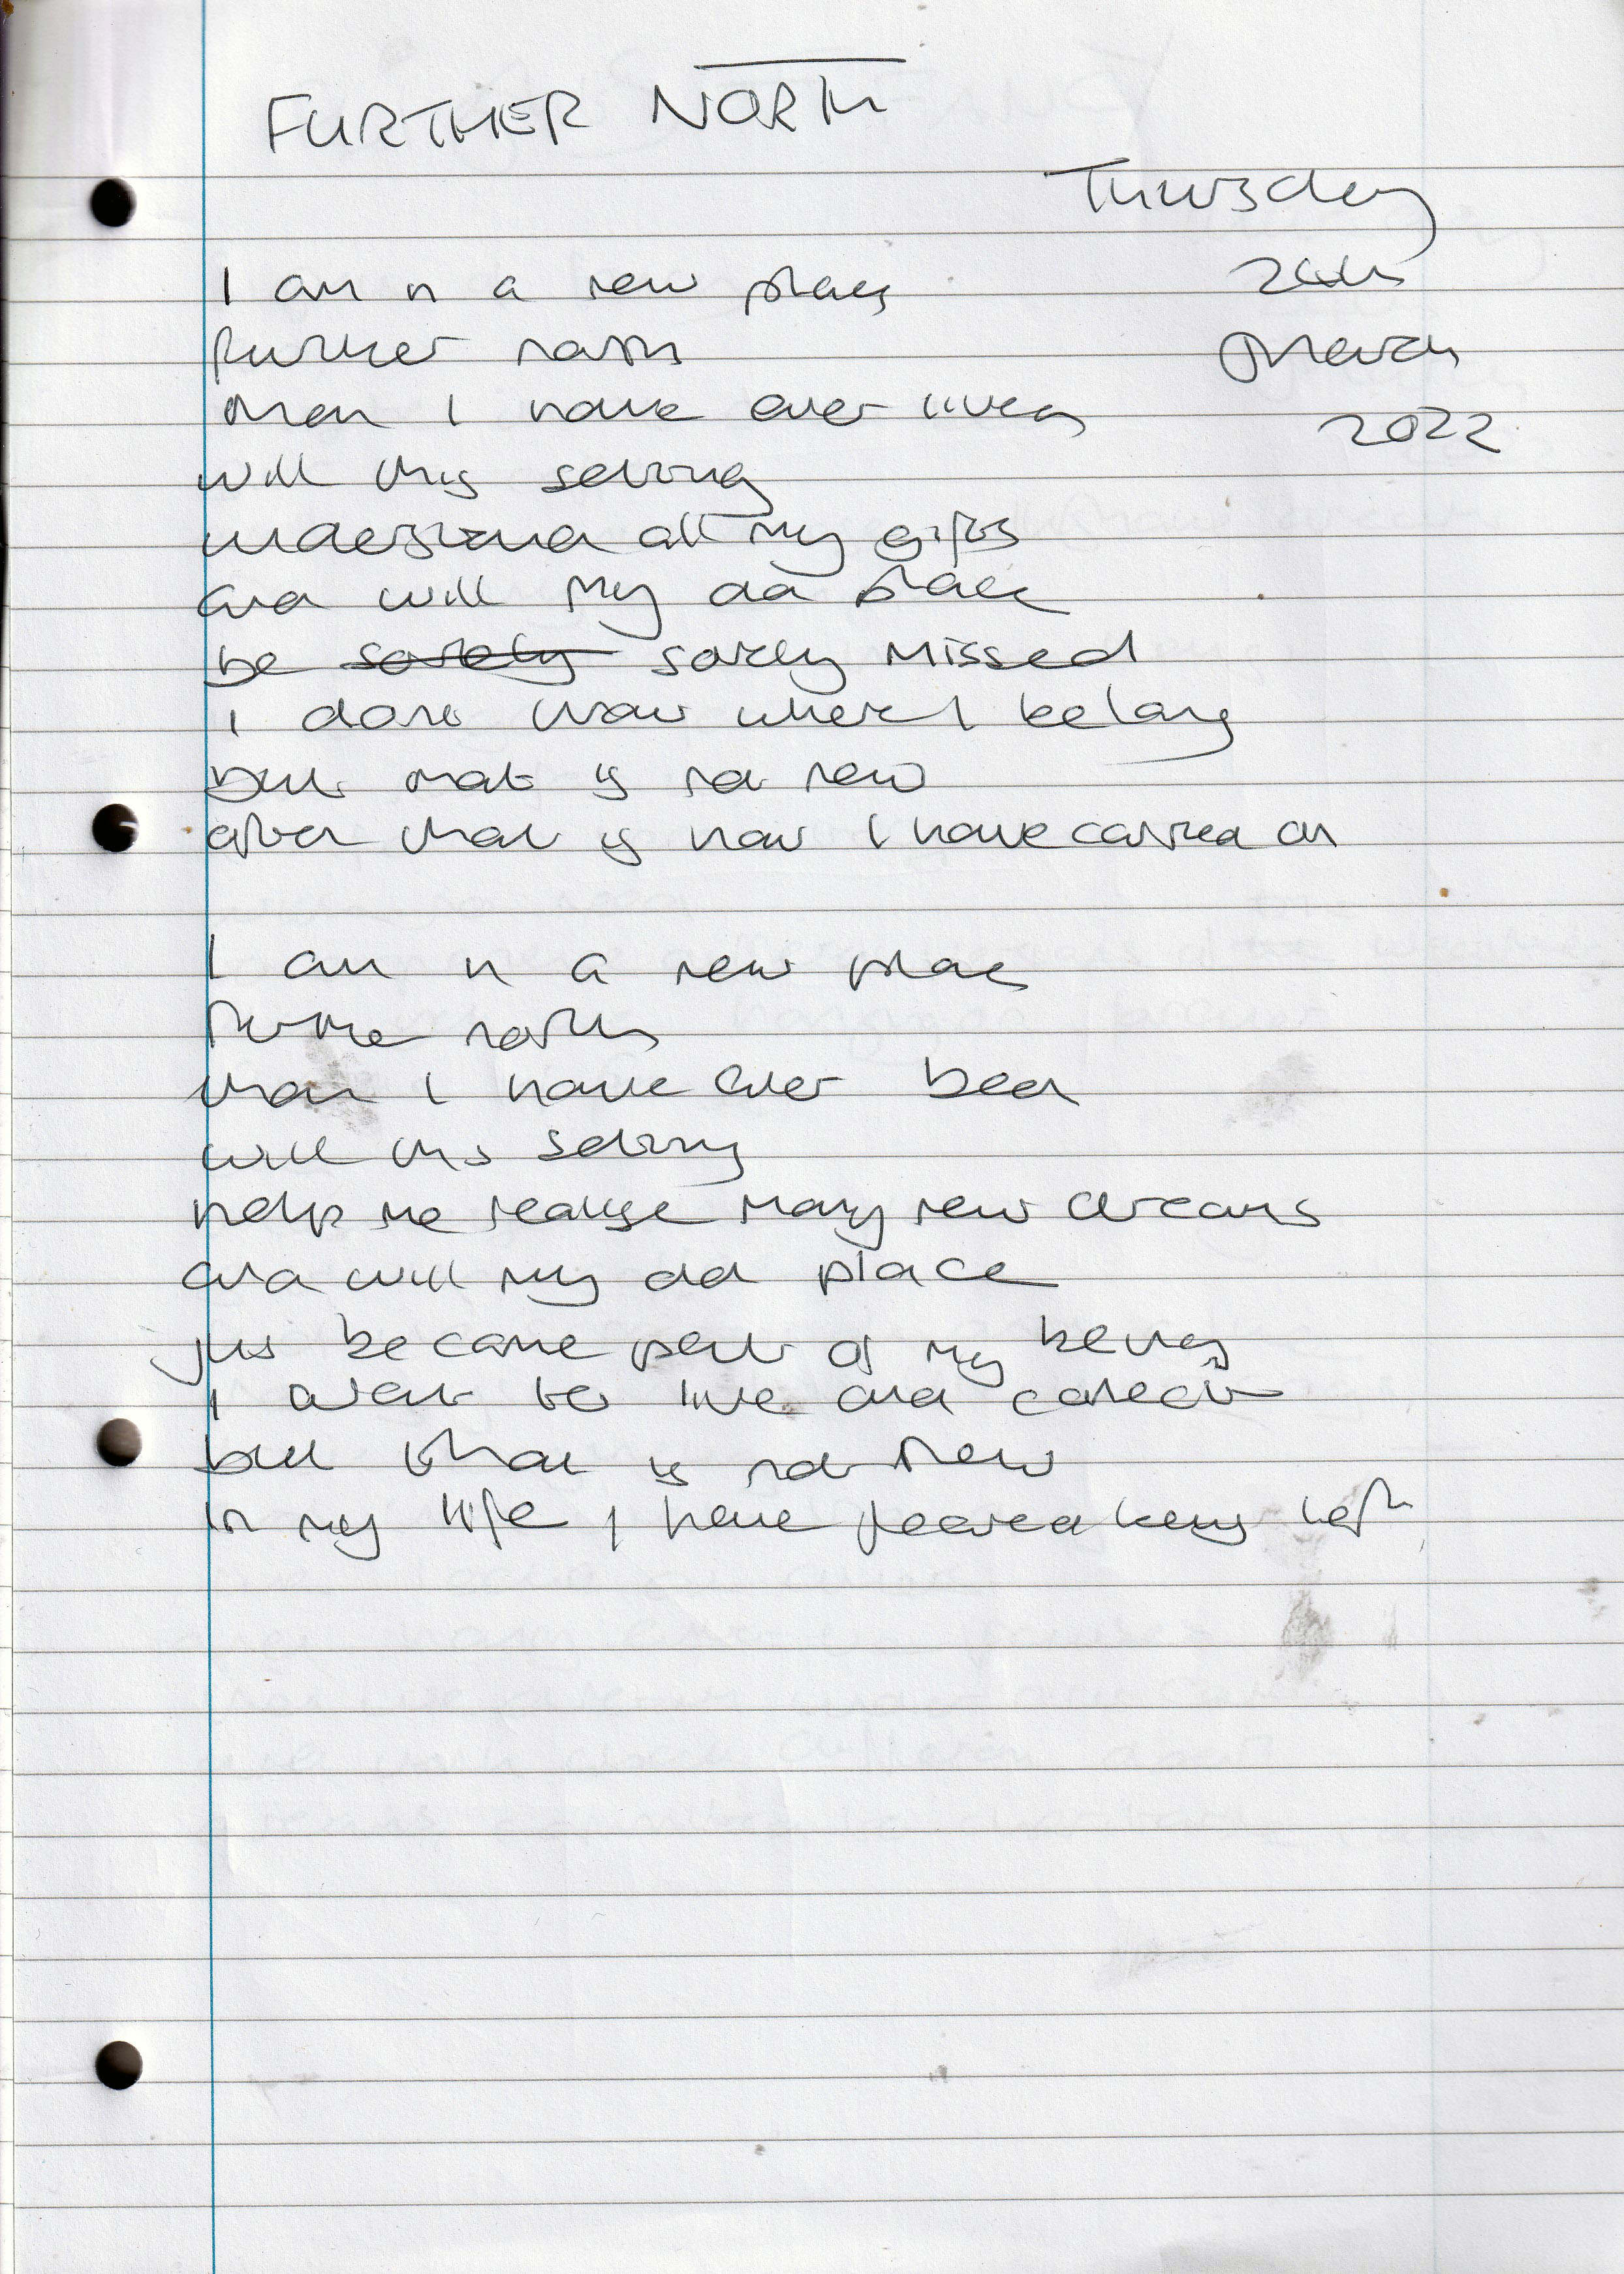 FURTHER NORTH
Thursday
24th
March
2022
I am in a new place
further north
than I have ever lived
will this setting
understand all my gifts
and will my old place
be sorely sorely missed
I dont know where I belong
but that is not new
often that is how I have carried on
I am in a new place
further north
than I have ever been
will this setting
help me realise many new dreams
and will my old place
just become part of my being
I want to live and connect
but that is not new
in my life I have feared being left